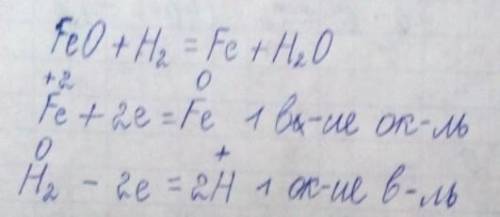 FeO + H₂ = Fe + H₂O
+2 0
Fe + 2e = Fe 1 вк-ие ок-ль
0 +
H₂ - 2e = 2H 1 ок-ие в-ль